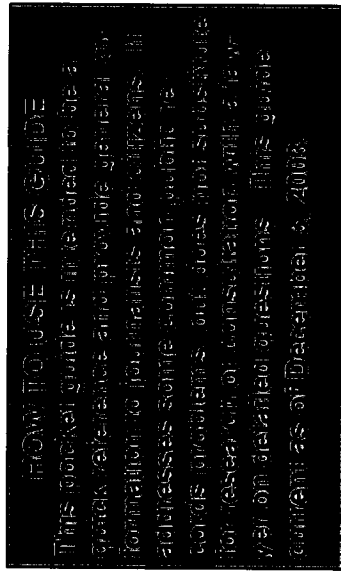 HOW TO USE THIS GUIDE
This pocket guide is intended to be a
quick reference and provide general in-
formation to journalists and citizens. It
addresses some common public re-
cords problems, but does not substitute
for research or consultation with a law-
yer on detailed questions. This guide
current as of December 5, 2008.